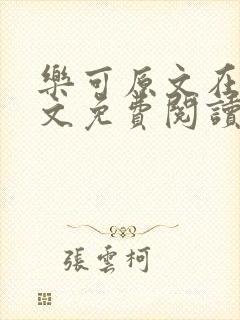 樂可原文在
文免費閱讀
張雲柯